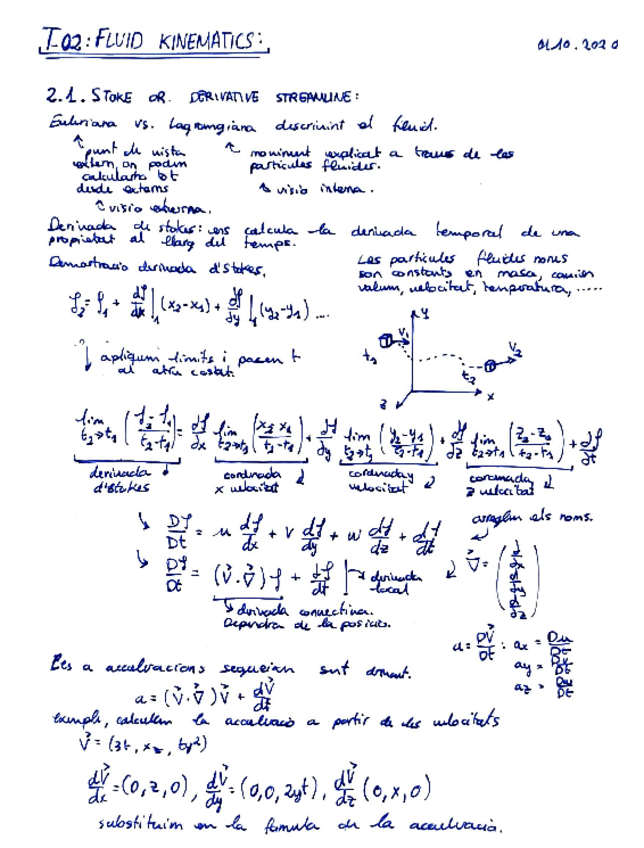 T-02: FLUID KINEMATICS:
01.10.2020
2.1. STOKE OR DERIVATIVE STREAMLINE:
Euleriana vs. Lagrangiana descrivint el fluid.
punt de vista
extern, on podem
calcularho tot
desde externs
visio externa.
moviment explicat a traves de les
particules fluides.
visio interna.
Derivada de stokes: ens calcula la derivada temporal de una
propietat al llarg del temps.
Demostracio derivada d'stokes.
Les particules fluides nomes
son constants en masa, canvien
volum, velocitat, temperatura, .....
f₂ = f₁ + df/dx|₁ (x₂-x₁) + df/dy|₁ (y₂-y₁) ....
y
V₁
t₁
V₂
t₂
x
z
apliquem limits i pasem t
al altre costat.
lim t₂→t₁ (f₂-f₁/t₂-t₁) = df/dx lim t₂→t₁ (x₂-x₁/t₂-t₁) + df/dy lim t₂→t₁ (y₂-y₁/t₂-t₁) + df/dz lim t₂→t₁ (z₂-z₁/t₂-t₁) + df/dt
derivada
d'stokes
coordenada
x velocitat
coordenada y
velocitat
coordenada
z velocitat
arreglem els noms.
Df/Dt = u df/dx + v df/dy + w df/dz + df/dt
Df/Dt = (V⃗.∇⃗) f + df/dt
derivada
local
∇⃗ = (d/dx d/dy d/dz)
derivada convectiva.
Dependra de la posicio.
a = DV⃗/Dt : ax = Du/Dt
ay = Dv/Dt
az = Dw/Dt
Les a acceleracions segueixen sent
a = (V⃗.∇⃗) V⃗ + dV⃗/dt
exemple, calculem la acceleracio a partir de les velocitats
V⃗ = (3t, xz, ty²)
dV⃗/dx = (0, z, 0), dV⃗/dy = (0, 0, 2yt), dV⃗/dz (0, x, 0)
substituim en la formula de la acceleracio.